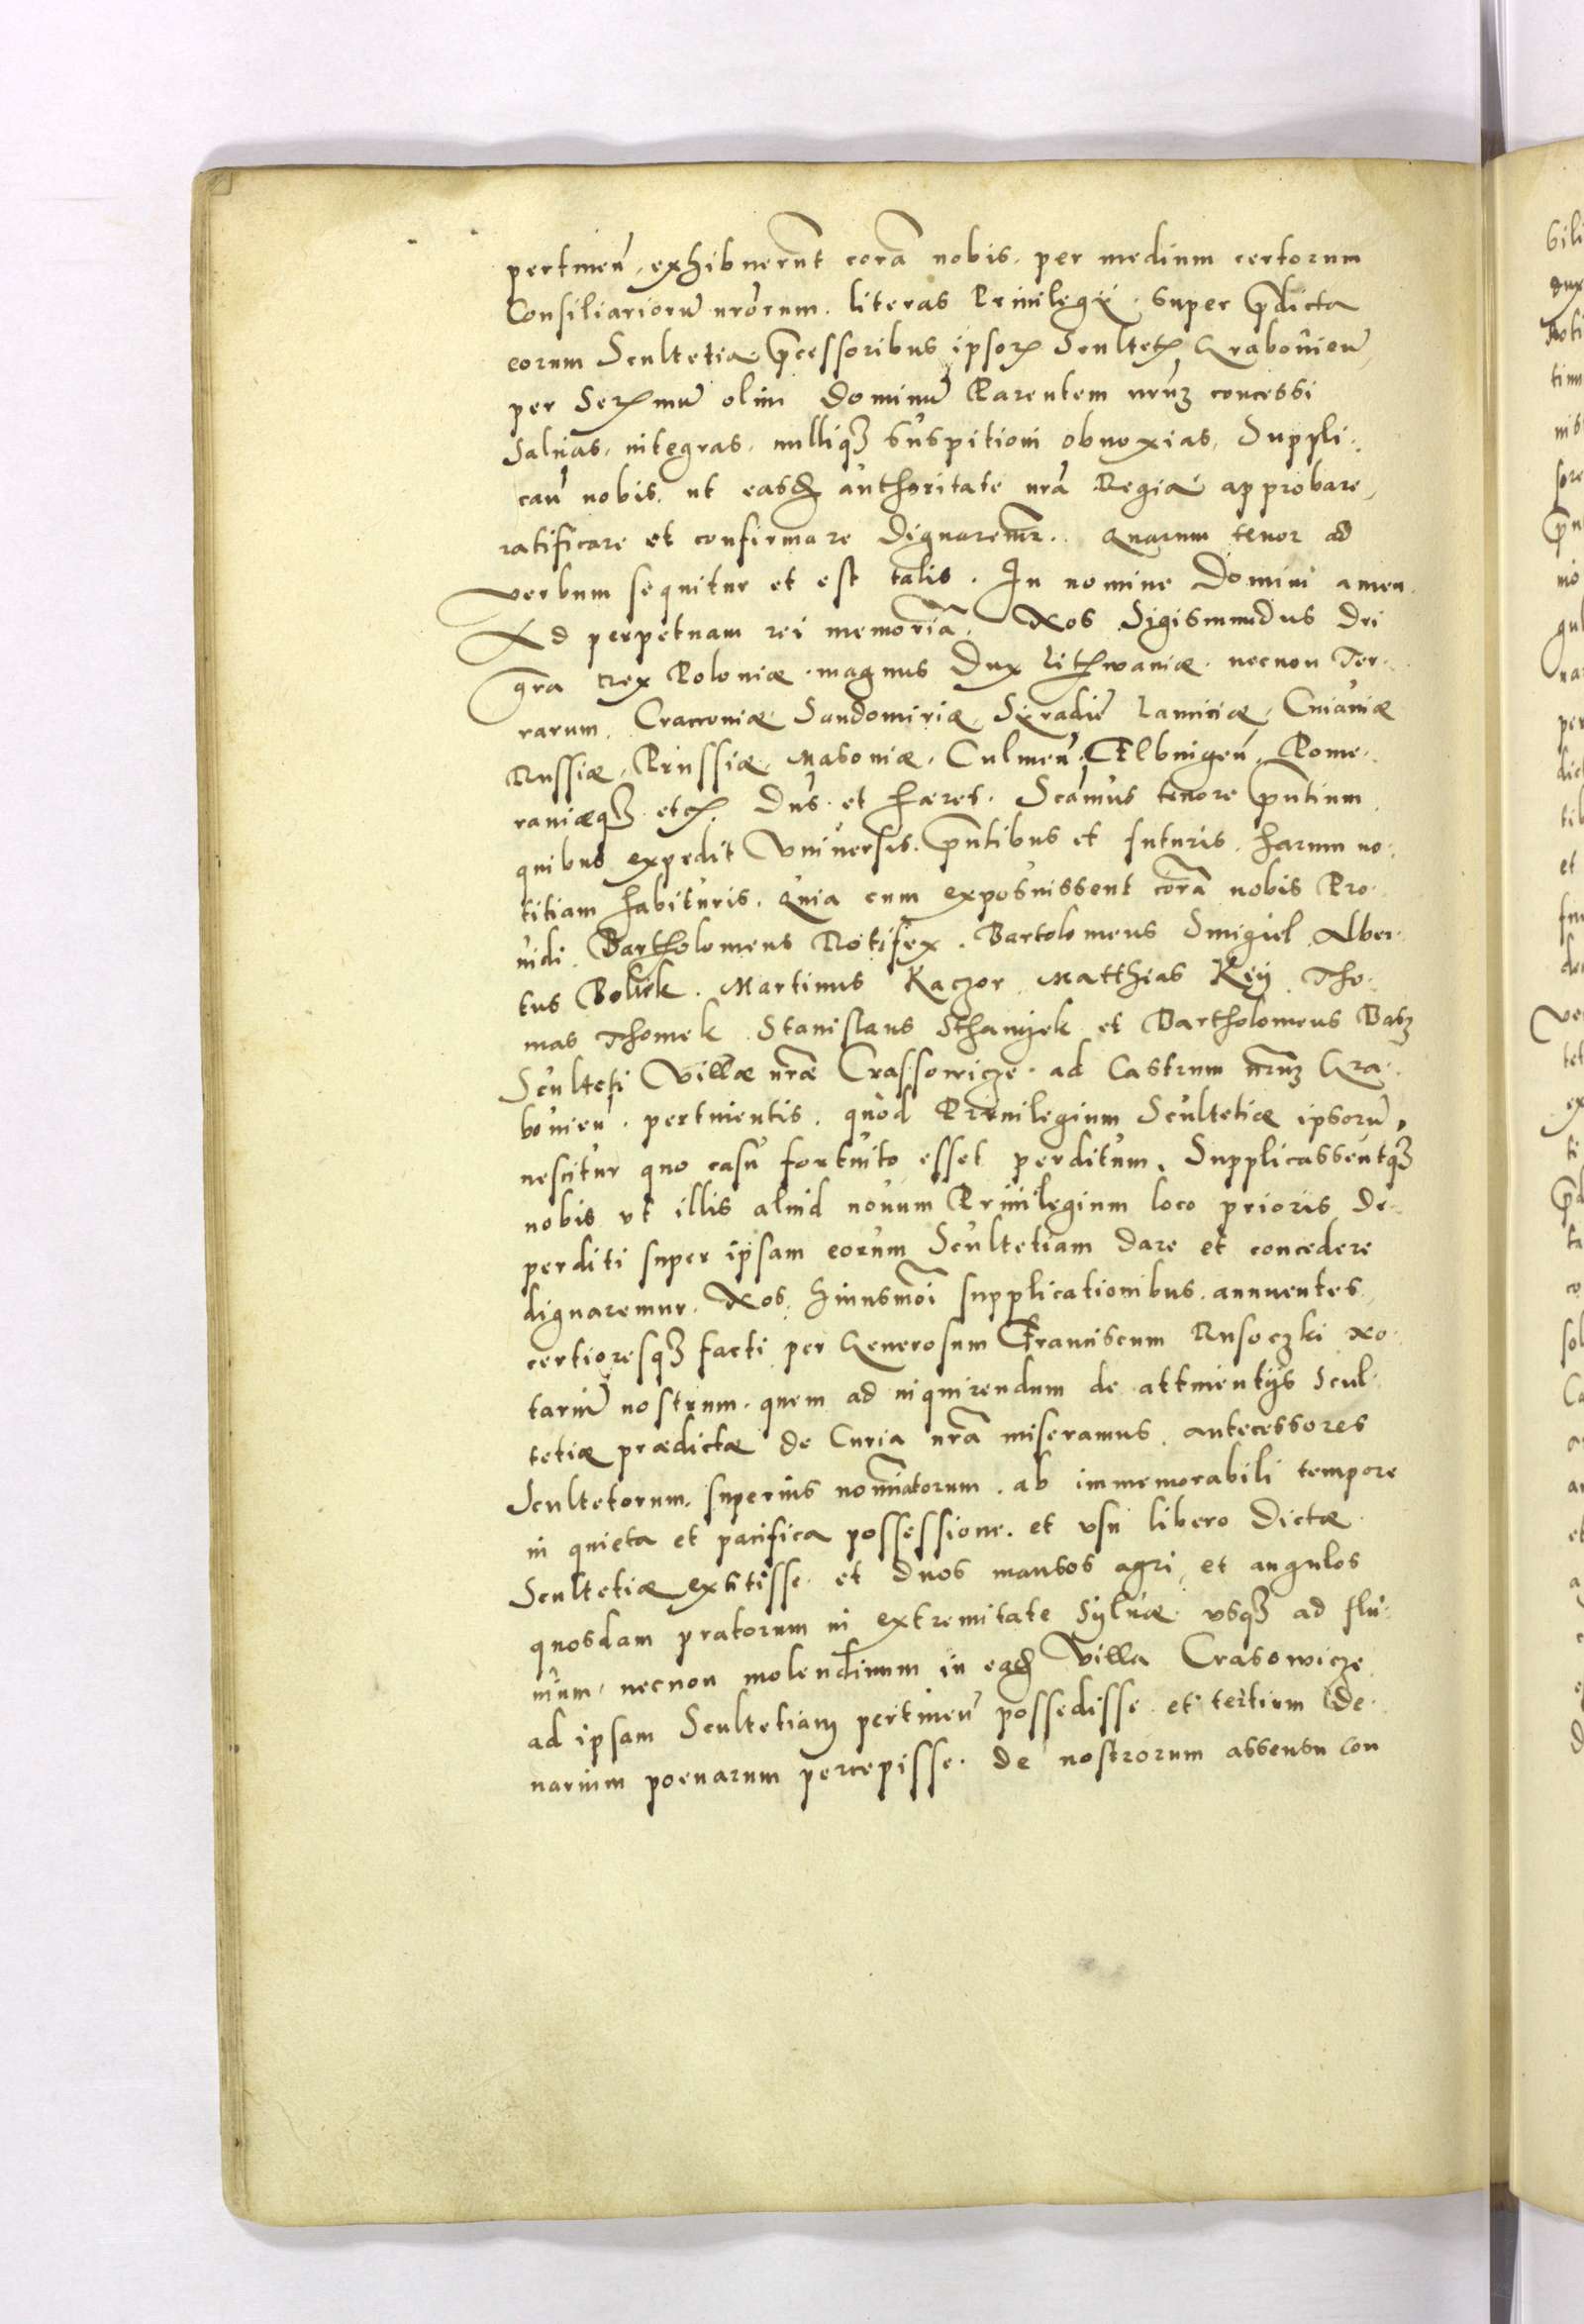 pertineñ, exhibuerunt corã nobis, per medium certorum
Consiliarioru nrorum, literas Priuilegÿ, super pdicta
eorum Scultetia pcessoribus ipsor Scultet Grabouieñ,
per Sermu olim Dominu Parentem nruz concessi
Saluas, integras, nulliqz suspitioni obnoxias, Suppli:
cañ nobis, ut easd authoritate nrã Regia approbare,
ratificare et confirmare dignaremr. Quarum tenor ad
verbum sequitur et est talis. In nomine Domini amen.
Ad perpetuam rei memoriã. Nos Sigismundus Dei
gra Rex Poloniæ, magnus Dux Lithwaniæ, necnon Ter-
rarum, Cracouiæ, Sandomiriæ, Siradiẽ Lanciciæ, Cuiauiæ
Russiæ, Prussiæ, Masouiæ, Culmeñ, Elbingeñ, Pome-
raniæqz etc. Dñs et hæres. Scamus tenore pntium
quibus expedit Vniuersis, pntibus et futuris, harum no-
titiam habituris. Quia cum exposuissent corã nobis Pro-
uidi Bartholomeus Rotifex, Bartolomeus Smigiel Alber-
tus Bolek, Martinus Kaczor, Matthias Keÿ, Tho-
mas Thomek Stanislaus Sthanÿek et Bartholomeus Basz
Sculteti Villæ nræ Crassowicze ad Castrum nruz Gra-
bouieñ pertinentis, quod Priuilegium Scultetiæ ipsoru,
nescitur quo casu fortuito esset perditum, Supplicassentqz
nobis vt illis aliud nouum Priuilegium loco prioris de-
perditi super ipsam eorum Scultetiam dare et concedere
dignaremur, Nos, huiusmoi supplicationibus annuentes,
certioresqz facti per Generosum Franciscum Rusoczki No-
tariu nostrum, quem ad inquirendum de attinentÿs Scul-
tetiæ prædictæ de Curia nrã miseramus, antecessores
Scultetorum, superius nominatorum, ab immemorabili tempore
in quieta et pacifica possessione, et vsu libero dictæ
Scultetiæ extitisse et duos mansos agri, et angulos
quosdam pratorum in extremitate Syluæ vsqz ad flu-
uium, necnon molendinum in ead Villa Crasowicze
ad ipsam Scultetiam pertineñ possedisse et tertium de-
narium poenarum percepisse. De nostrorum assensu Con